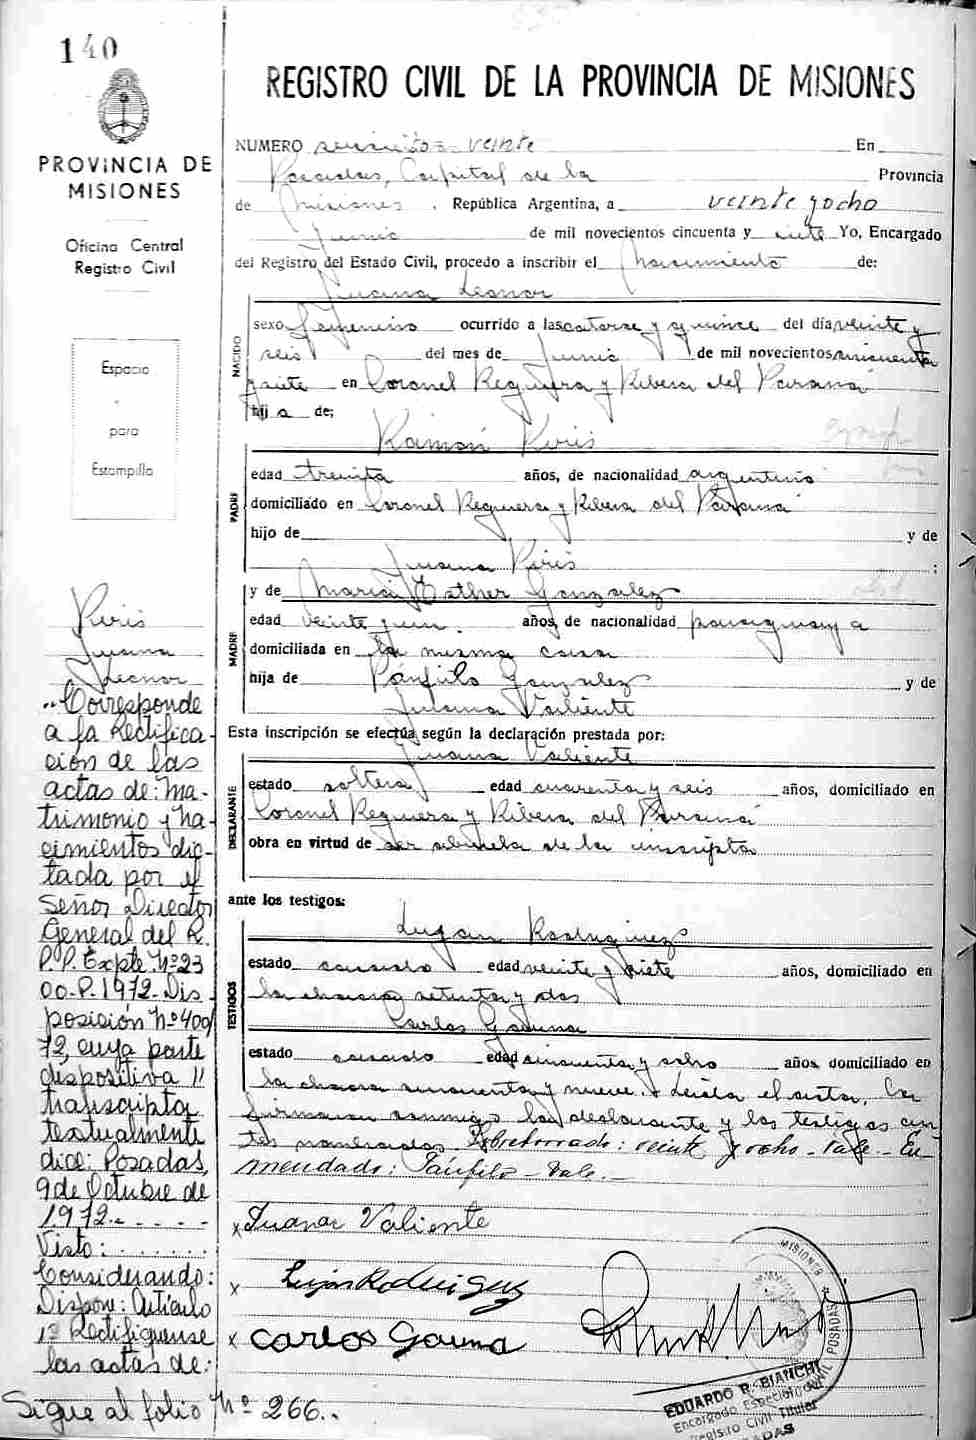 140
PROVINCIA DE
MISIONES
Oficina Central
Registro Civil
Espacio
para
Estampilla
Piris
Juana
Leonor
"Corresponde
a la Rectifica-
ción de las
actas de: Ma-
trimonio y na-
cimientos dic-
tada por el
Señor Director
General del R.
P.P. Expte Nº 23
00-P. 1972- Dis
posición Nº 400/
72, cuya parte
dispositiva
transcripta
textualmente
dice: Posadas,
9 de Octubre de
1972.-
Visto:
Considerando:
Dispone: Artículo
1º Rectifíquense
las actas de:
Sigue al folio Nº 266..
REGISTRO CIVIL DE LA PROVINCIA DE MISIONES
NUMERO seiscientos veinte En
Posadas, Capital de la Provincia
de Misiones. República Argentina, a veinte y ocho
Junio de mil novecientos cincuenta y siete Yo, Encargado
del Registro del Estado Civil, procedo a inscribir el Nacimiento de:
Juana Leonor
NACIDO
sexo femenino ocurrido a las catorse y quince del día veinte y
seis del mes de Junio de mil novecientos cincuenta
y siete en Coronel Reguera y Ribera del Paraná
hija de;
Ramón Piris
PADRE
edad treinta años, de nacionalidad argentino
domiciliado en Coronel Reguera y Ribera del Paraná
hijo de y de
Juana Piris ;
MADRE
y de María Esther Gonzalez
edad veinte y un. años, de nacionalidad paraguaya
domiciliada en la misma casa
hija de Pánfilo Gonzalez y de
Juana Valiente
Esta inscripción se efectúa según la declaración prestada por:
Juana Valiente
DECLARANTE
estado soltera edad cuarenta y seis años, domiciliado en
Coronel Reguera y Ribera del Paraná
obra en virtud de ser abuela de la inscripta
ante los testigos:
Lujan Rodriguez
TESTIGOS
estado casado edad veinte y siete años, domiciliado en
la chacra setenta y dos
Carlos Gauna
estado casado edad cincuenta y ocho años, domiciliado en
la chacra cincuenta y nueve. Leída el acta, la
firmaron conmigo la declarante y los testigos an-
tes nombrados Sobreborrado: veinte y ocho - vale - En-
mendado: Pánfilo - vale.-
x Juana Valiente
x Lujan Rodriguez
x Carlos Gauna
MISIONES
CIVIL POSADAS
EDUARDO R. BIANCHI
Encargado Especial
Registro Civil Titular
POSADAS